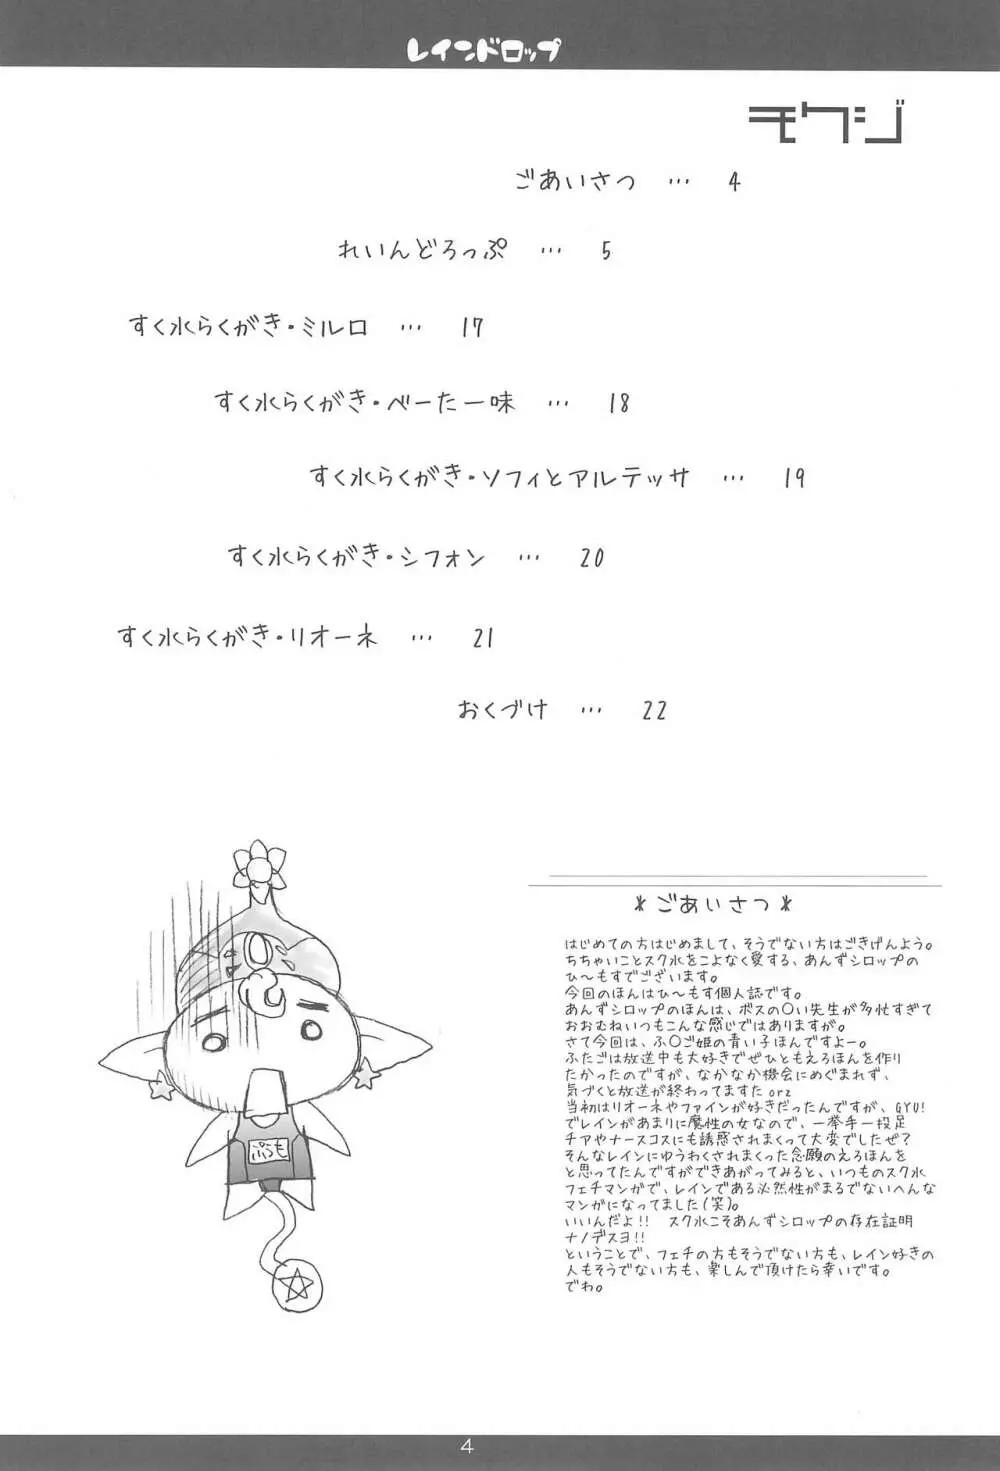 レインドロップ
モクジ
ごあいさつ … 4
れいんどろっぷ … 5
すく水らくがき・ミルロ … 17
すく水らくがき・べーた一味 … 18
すく水らくがき・ソフィとアルテッサ … 19
すく水らくがき・シフォン … 20
すく水らくがき・リオーネ … 21
おくづけ … 22
ぷうも
*ごあいさつ*
はじめての方はじめまして、そうでない方はごきげんよう。
ちちゃいことスク水をこよなく愛する、あんずシロップの
ひ～もすでございます。
今回のほんはひ～もす個人誌です。
あんずシロップのほんは、ボスの〇い先生が多忙すぎて
おおむねいつもこんな感じではありますが。
さて今回は、ふ〇ご姫の青い子ほんですよー。
ふたごは放送中も大好きでぜひともえろほんを作り
たかったのですが、なかなか機会にめぐまれず、
気づくと放送が終わってますたorz
当初はリオーネやファインが好きだったんですが、GYU!
でレインがあまりに魔性の女なので、一挙手一投足
チアやナースコスにも誘惑されまくって大変でしたぜ?
そんなレインにゆうわくされまくった念願のえろほんを
と思ってたんですができあがってみると、いつものスク水
フェチマンガで、レインである必然性がまるでないへんな
マンガになってました(笑)。
いいんだよ!! スク水こそあんずシロップの存在証明
ナノデスヨ!!
ということで、フェチの方もそうでない方も、レイン好きの
人もそうでない方も、楽しんで頂けたら幸いです。
でわ。
4